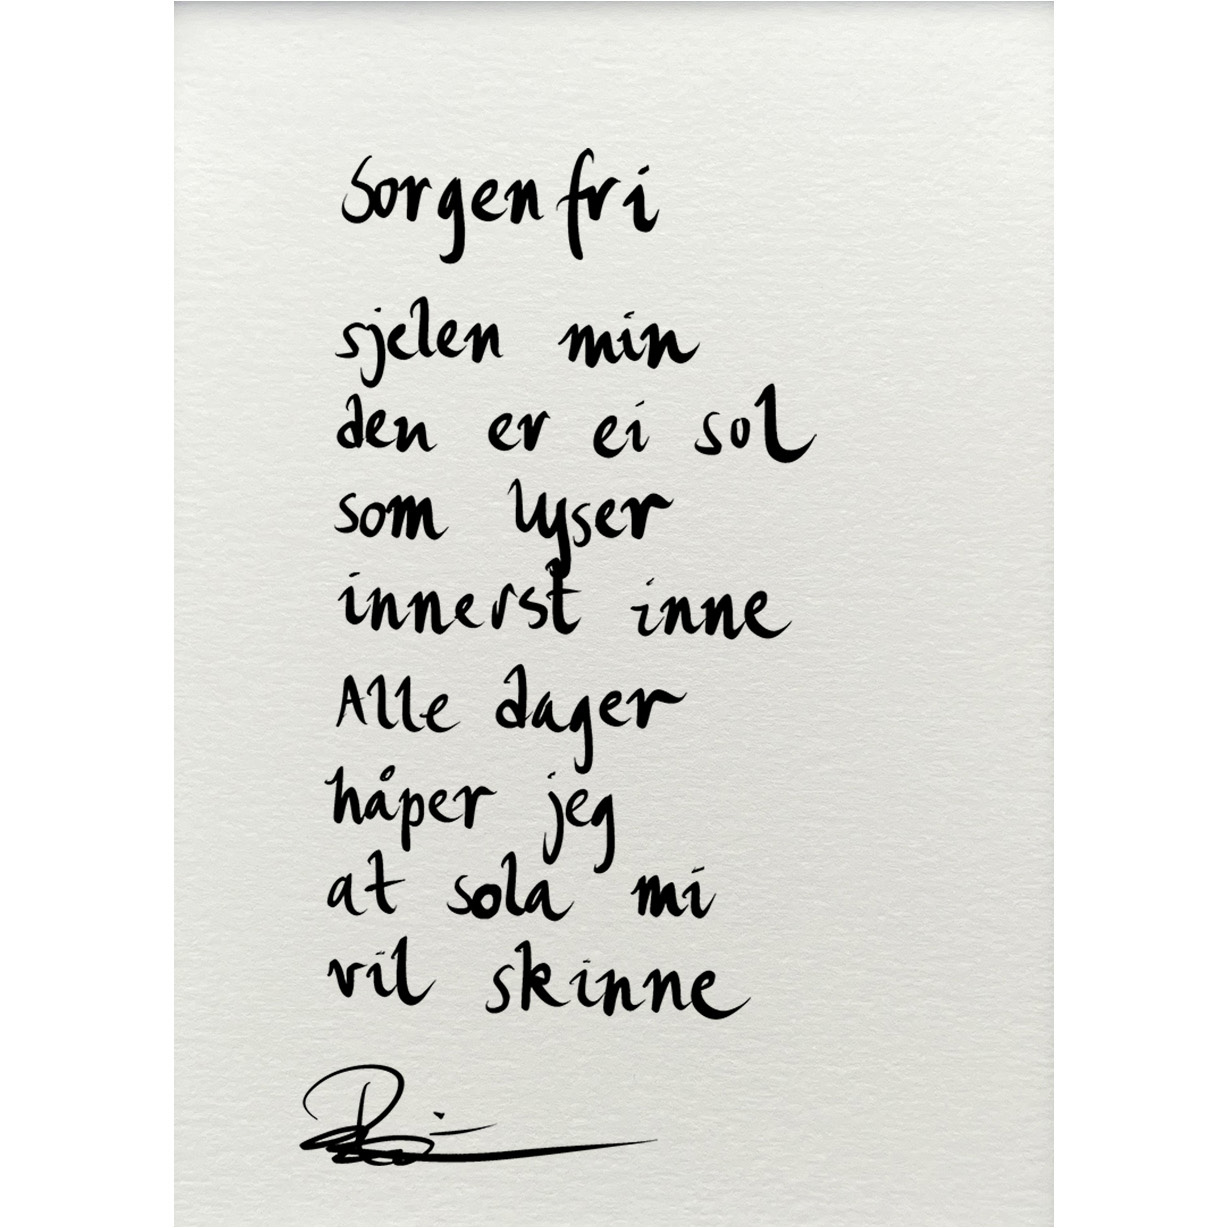 Sorgenfri
sjelen min
den er ei sol
som lyser
innerst inne
Alle dager
håper jeg
at sola mi
vil skinne